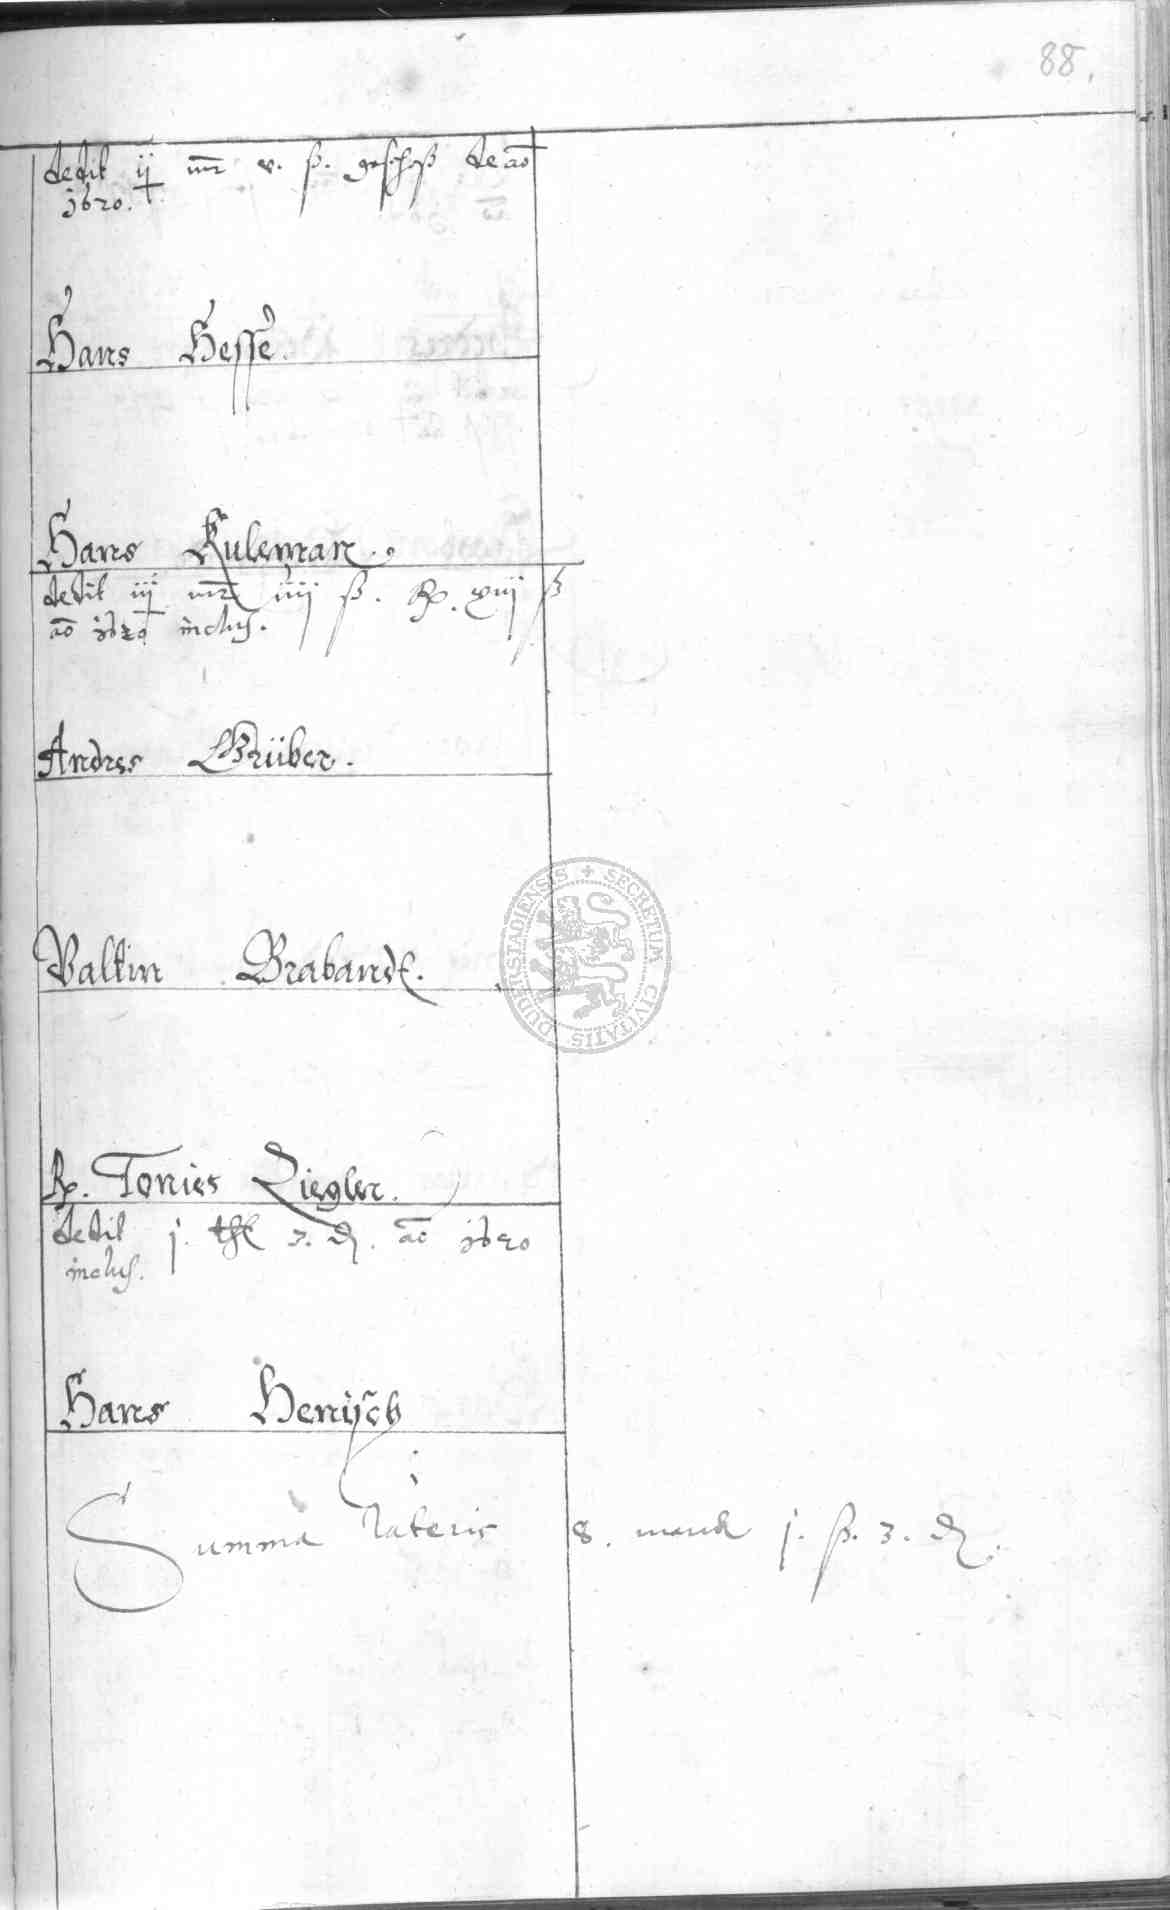 88.
dedit ij mr v. ß. geschoß de ao
1620.
Hans Hesse.
Hans Kuleman.
dedit iij mr iiij ß. Rp. xviij ß
ao 1620 inclus.
Andres Grüber.
Valtin Brabandt.
DUDERSTADIENSIS + SECRETUM CIVITATIS
Rp. Tonies Ziegler.
dedit j. thl 3. d. ao 1620
inclus.
Hans Henisch
Summa lateris 8. marck j. ß. 3. d.